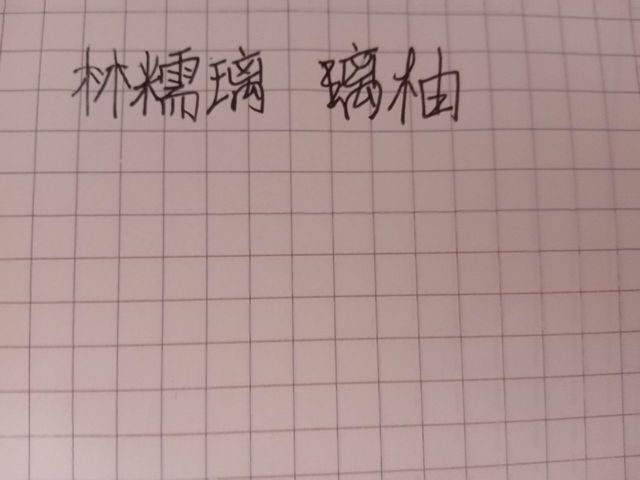 林糯璃 璃柚